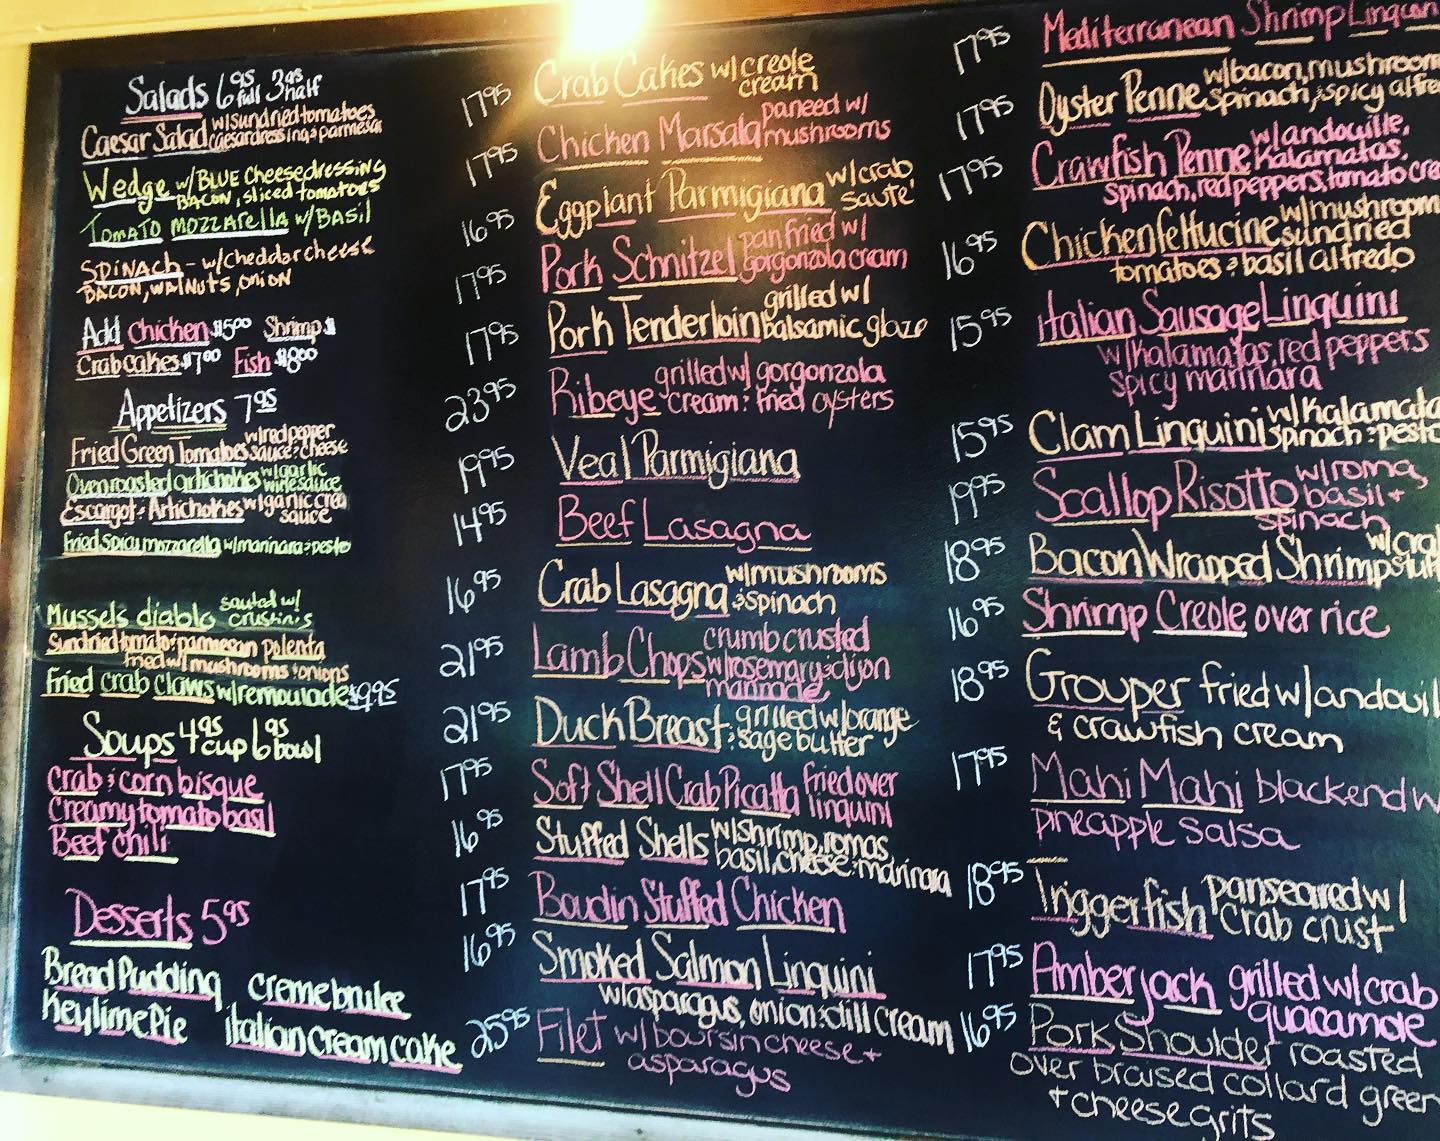 Salads 6.95 full 3.95 half
Caesar Salad w/sundried tomatoes
caesar dressing & parmesan
Wedge w/BLUE Cheese dressing
BACON, sliced tomatoes
TOMATO MOZZARELLA w/BASIL
SPINACH - w/cheddar cheese
BACON, WALNUTS, ONION
Add chicken $5.00 Shrimp $
Crab Cakes $7.00 Fish $8.00
Appetizers 7.95
Fried Green Tomatoes w/red pepper
sauce & cheese
Oven roasted artichokes w/garlic
wine sauce
Escargot & Artichokes w/garlic
sauce
Fried spicy mozzarella w/marinara & pesto
Mussels diablo sauted w/
crustinis
Sundried tomato & parmesan polenta
fried w/ mushrooms & onions
Fried crab claws w/remoulade $9.95
Soups 4.95 cup 6.95 bowl
Crab & corn bisque
Creamy tomato basil
Beef chili
Desserts 5.95
Bread Pudding creme brulee
Key lime Pie italian cream cake
17.95 Crab Cakes w/creole
cream
17.95 Chicken Marsala paneed w/
mushrooms
16.95 Eggplant Parmigiana w/crab
sauté
17.95 Pork Schnitzel pan fried w/
gorgonzola cream
17.95 Pork Tenderloin grilled w/
balsamic glaze
23.95 Ribeye grilled w/ gorgonzola
cream & fried oysters
19.95 Veal Parmigiana
14.95 Beef Lasagna
16.95 Crab Lasagna w/mushrooms
& spinach
21.95 Lamb Chops crumb crusted
w/rosemary & dijon
marinade
21.95 Duck Breast & grilled w/orange
& sage butter
17.95 Soft Shell Crab Picatta fried over
linguini
16.95 Stuffed Shells w/shrimp, romas
basil, cheese & marinara
17.95 Boudin Stuffed Chicken
16.95 Smoked Salmon Linquini
w/asparagus, onion & dill cream
25.95 Filet w/ boursin cheese +
asparagus
17.95 Mediterranean Shrimp
17.95 Oyster Penne w/bacon, mushroom
spinach, & spicy
17.95 Crawfish Penne w/andouille,
Kalamatas,
spinach, red peppers, tomato
16.95 Chicken fettucine w/mushroom
sundried
tomatoes & basil alfredo
15.95 italian Sausage Linquini
w/kalamatas, red peppers
spicy marinara
15.95 Clam Linquini w/Kalamata
spinach & pesto
19.95 Scallop Risotto w/roma,
basil +
spinach
18.95 Bacon Wrapped Shrimp
16.95 Shrimp Creole over rice
18.95 Grouper fried w/
& crawfish cream
17.95 Mahi Mahi blackend w
pineapple salsa
18.95 Triggerfish panseared w/
Crab crust
17.95 Amberjack grilled w/crab
guacamole
16.95 Pork Shoulder roasted
over braised collard green
+ cheese grits